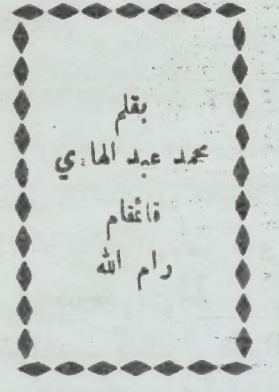 بقلم
محمد عبد الهادي
قائمقام
رام الله